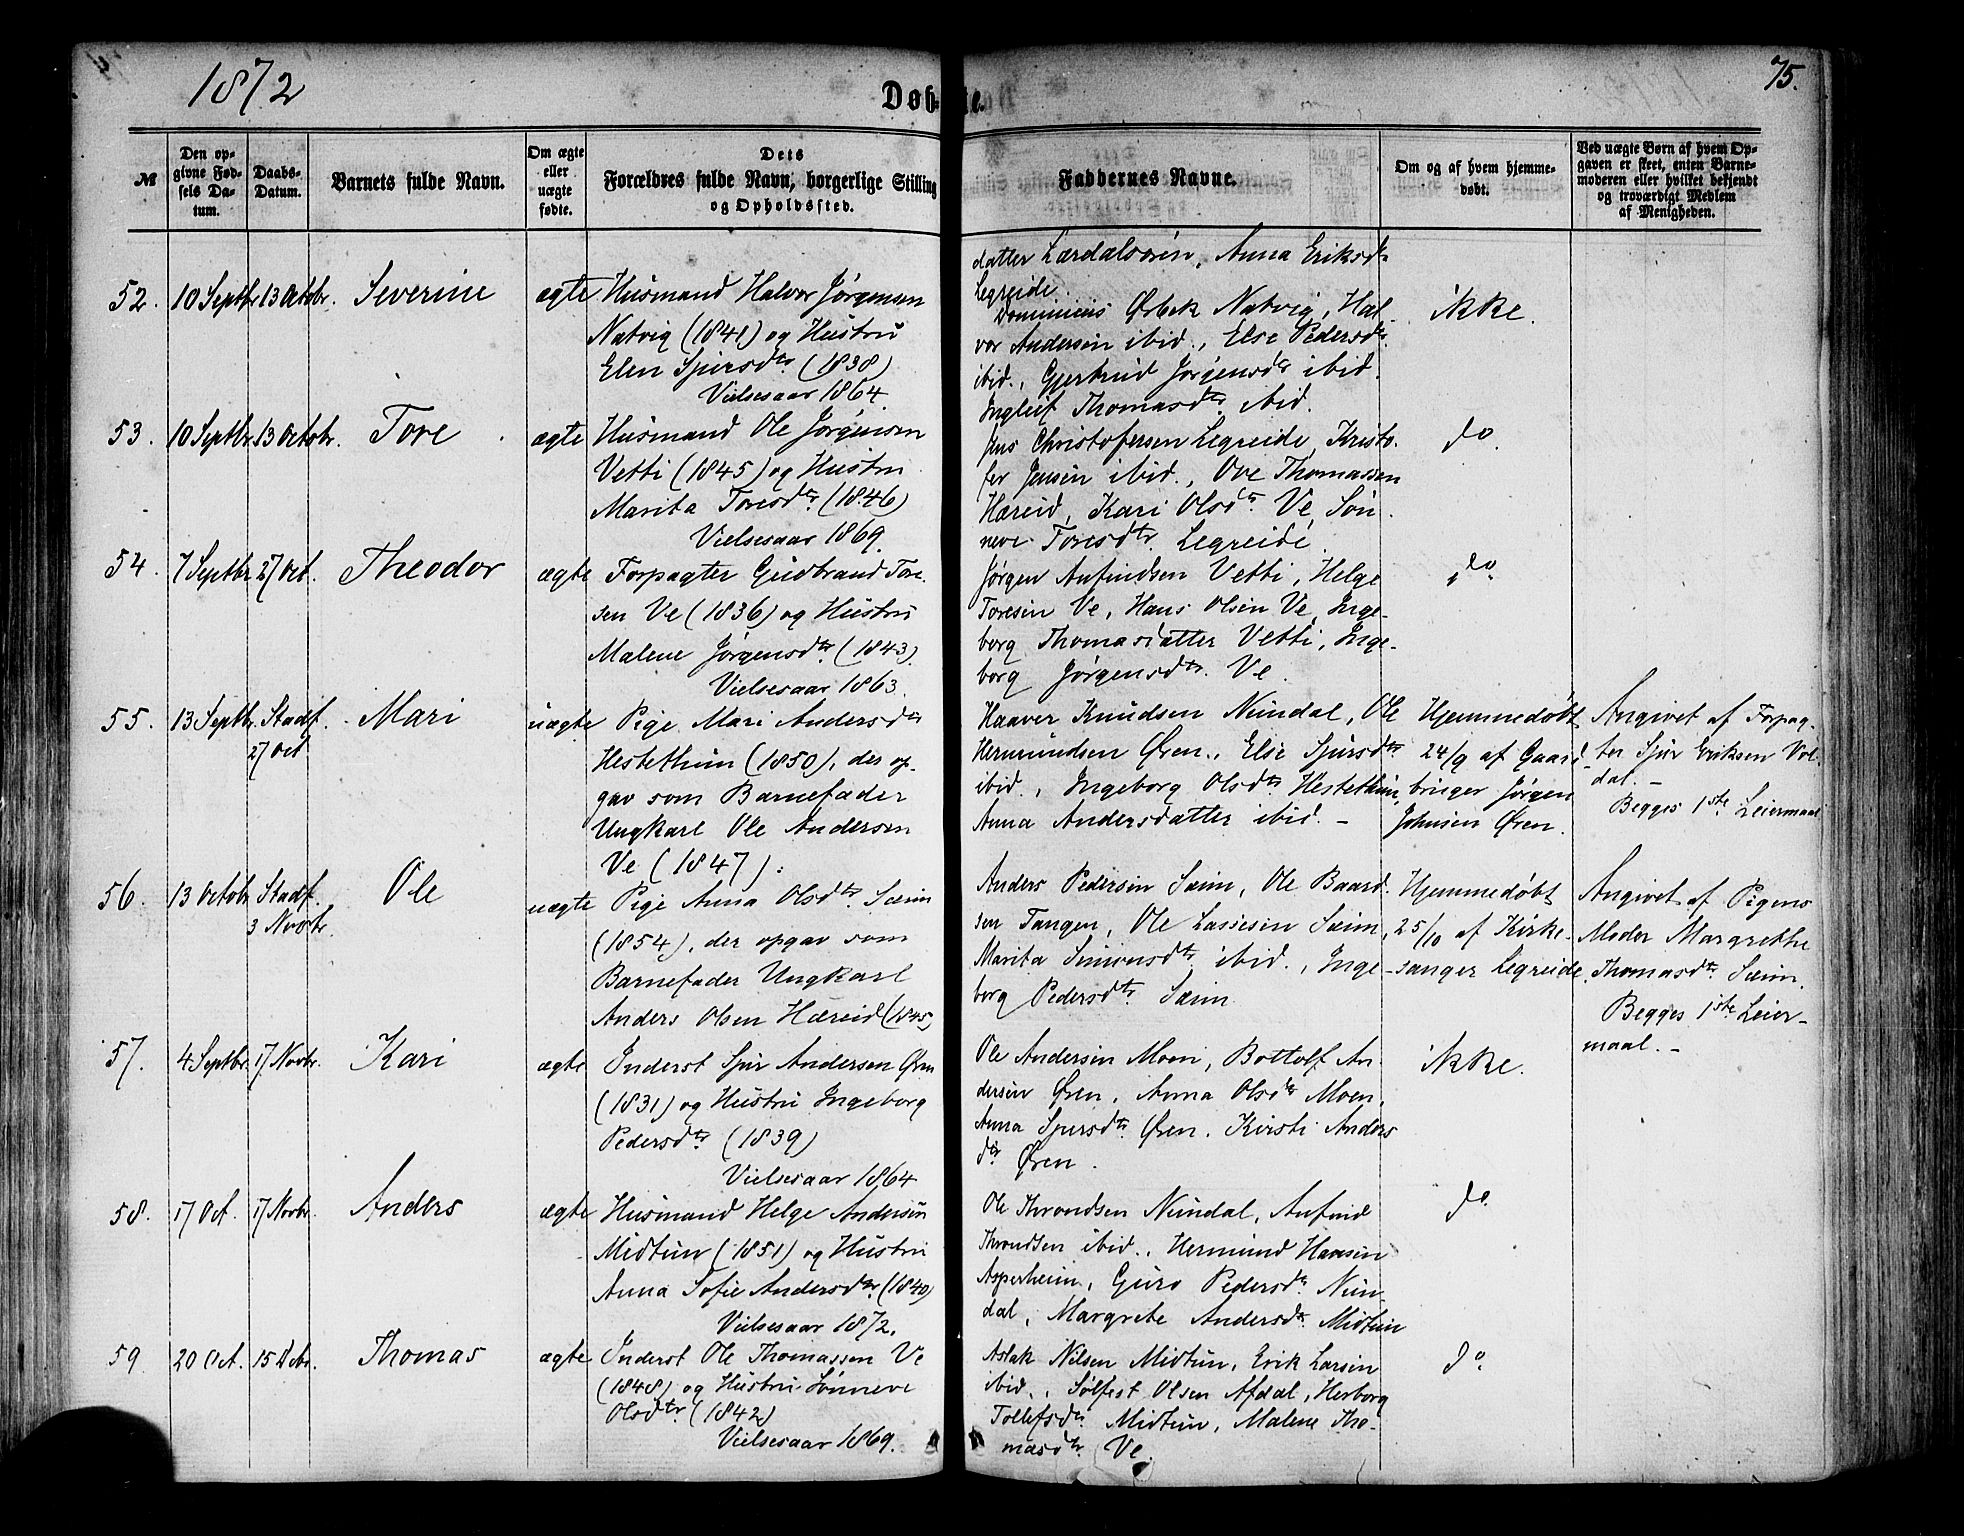 1872
Døb-
te.
75.
№
Den op-
givne Fød-
sels Da-
tum.
Daabs-
Datum.
Barnets fulde Navn.
Om ægte
eller
uægte
fødte.
Dets
Forældres fulde Navn, borgerlige Stilling
og Opholdssted.
Faddernes Navne.
Om og af hvem hjemme-
døbt.
Ved uægte Børn af hvem Op-
gaven er skeet, enten Barne-
moderen eller hvilket bekjendt
og troværdigt Medlem
af Menigheden.
datter Lærdalsøren, Anna Eriksdtr
Legreide.
52. 10 Septbr 13 Octobr. Severine ægte
Husmand Halvor Jørgensen
Natvig (1841) og Hustru
Elen Sjursdtr (1838)
Vielsesaar 1864.
Dominicus Ørbek Natvig, Hal-
vor Andersen ibid., Else Pedersdtr
ibid., Gjertrud Jørgensdtr ibid.
Ingleif Thomasdtr. ibid.
ikke.
53. 10 Septbr. 13 Octobr. Tore ægte
Husmand Ole Jørgensen
Vetti (1845) og Hustru
Marita Toresdtr. (1846)
Vielsesaar 1869.
Jens Christofersen Legreide, Kristo-
fer Jensen ibid., Ove Thomassen
Hæreid, Kari Olsdtr. Ve, Søn-
neve Toresdtr. Legreide.
do.
54. 7 Septbr 27 Oct. Theodor ægte
Forpagter Gudbrand Tore-
sen Ve (1836) og Hustru
Malene Jørgensdtr. (1843).
Vielsesaar 1863.
Jørgen Anfindsen Vetti, Helge
Toresen Ve, Hans Olsen Ve, Inge-
borg Thomasdatter Vetti, Inge-
borg Jørgensdtr. Ve.
do.
55. 13 Septbr. Stadf. 27 Oct Mari uægte
Pige Mari Andersdtr
Hestethun (1850), der op-
gav som Barnefader
Ungkarl Ole Andersen
Ve (1847).
Haaver Knudsen Nundal, Ole
Hermundsen Øren., Else Sjursdtr
ibid., Ingeborg Olsdtr Hestethun,
Anna Andersdatter ibid. -
Hjemmedøbt
24/9 af Gaard-
bruger Jørgen
Johnsen Øren.
Angivet af Forpag-
ter Sjur Eriksen Vol-
dal. -
Begges 1ste Leiermaal
56. 13 Octobr Stadf. 3 Novbr. Ole uægte
Pige Anna Olsdtr. Sæim
(1854), der opgav som
Barnefader Ungkarl
Anders Olsen Hæreid (1845)
Anders Pedersen Sæim, Ole Baard-
sen Tangen, Ole Lassesen Sæim,
Marita Simonsdtr. ibid., Inge-
borg Pedersdtr. Sæim
Hjemmedøbt
25/10 af Kirke-
sanger Legreide.
Angivet af Pigens
Moder Margrethe
Thomasdtr. Sæim.
Begges 1ste Leier-
maal. -
57. 4 Septbr. 17 Novbr. Kari ægte
Inderst Sjur Andersen Øren
(1831) og Hustru Ingeborg
Pedersdtr (1839)
Vielsesaar 1864
Ole Andersen Moen, Bottolf An-
dersen Øren, Anna Olsdtr Moen,
Anna Sjursdtr. Øren. Kirsti Anders
dtr Øren.
ikke.
58. 17 Oct. 17 Novbr. Anders ægte
Husmand Helge Andersen
Midtun (1851) og Hustru
Anna Sofie Andersdtr. (1840)
Vielsesaar 1872.
Ole Throndsen Nundal, Anfind
Throndsen ibid., Hermund Hansen
Asperheim, Guro Pedersdtr. Nun-
dal, Margrete Andersdtr. Midtun
do.
59 20 Oct. 15 Dcbr. Thomas ægte
Inderst Ole Thomassen Ve
(1848) og Hustru Sønneve
Olsdtr. (1842)
Vielsesaar 1869.
Aslak Nilsen Midtun, Erik Larsen
ibid., Sølfest Olsen Afdal, Herborg
Tollefsdtr. Midtun, Malene Tho-
masdtr. Ve.
do.